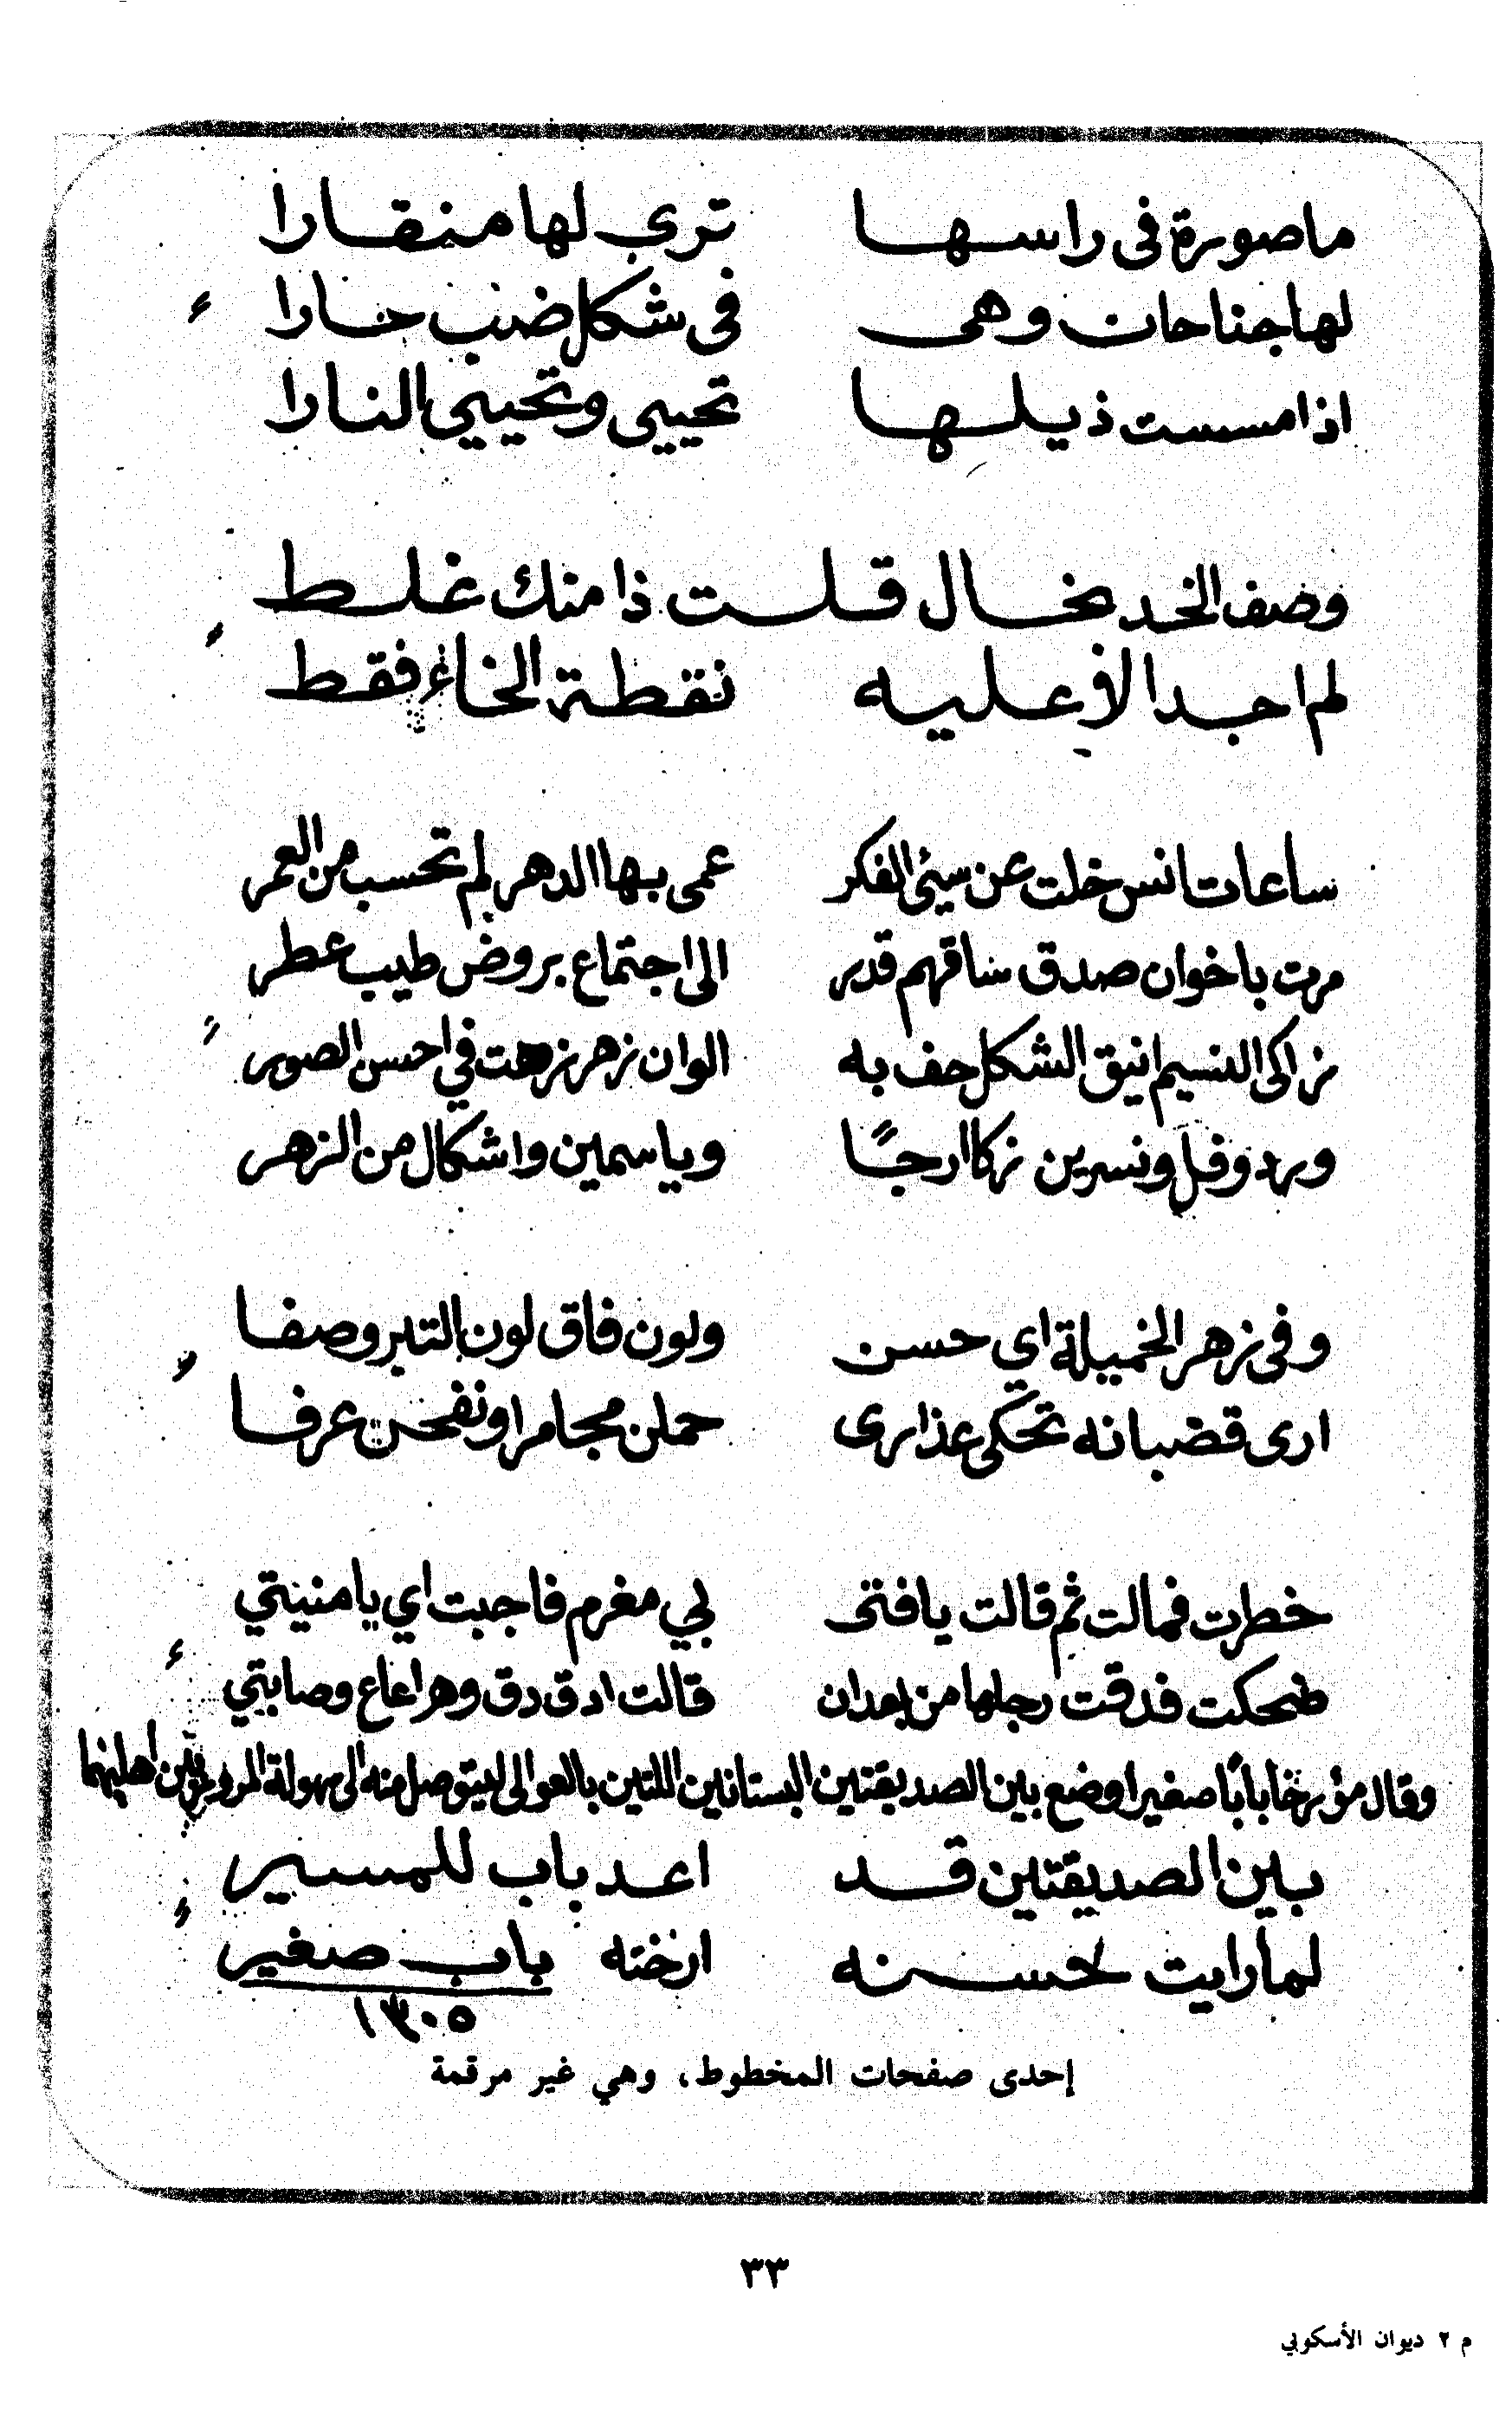 ماصورة فى راسها ترى لها منقارا
لها جناحان وهى فى شكل ضب حارا
اذا مسست ذيلها تحيى وتحيى النارا
وصف الخد بخال قلت ذا منك غلط
لم اجد الا عليه نقطة الخاء فقط
ساعات انس خلت عن سيئ الفكر عمى بها الدهر لم تحسب من العمر
مرت باخوان صدق ساقهم قدر الى اجتماع بروض طيب عطر
زاكى النسيم انيق الشكل حف به الوان زهر زهت في احسن الصور
ورد وفل ونسرين زكا ارجًا وياسمين واشكال من الزهر
وفى زهر الخميلة اي حسن ولون فاق لون التبر وصفا
ارى قضبانه تحكى عذارى حملن مجامرا ونفحن عرفا
خطرت فمالت ثم قالت يا فتى بي مغرم فاجبت اي يا منيتي
ضحكت فدقت رجلها من بعدان قالت ادق دق وهر اعاع وصابتي
وقال مؤرخا بابًا صغيرا وضع بين الصديقتين البستانين اللتين بالعوالى ليتوصل منه الى سهولة المرور بين اهليهما
بين الصديقتين قد اعد باب للمسير
لما رايت حسنه ارخته باب صغير
١٣٠٥
إحدى صفحات المخطوط، وهي غير مرقمة
٣٣
م ٢ ديوان الأسكوبي